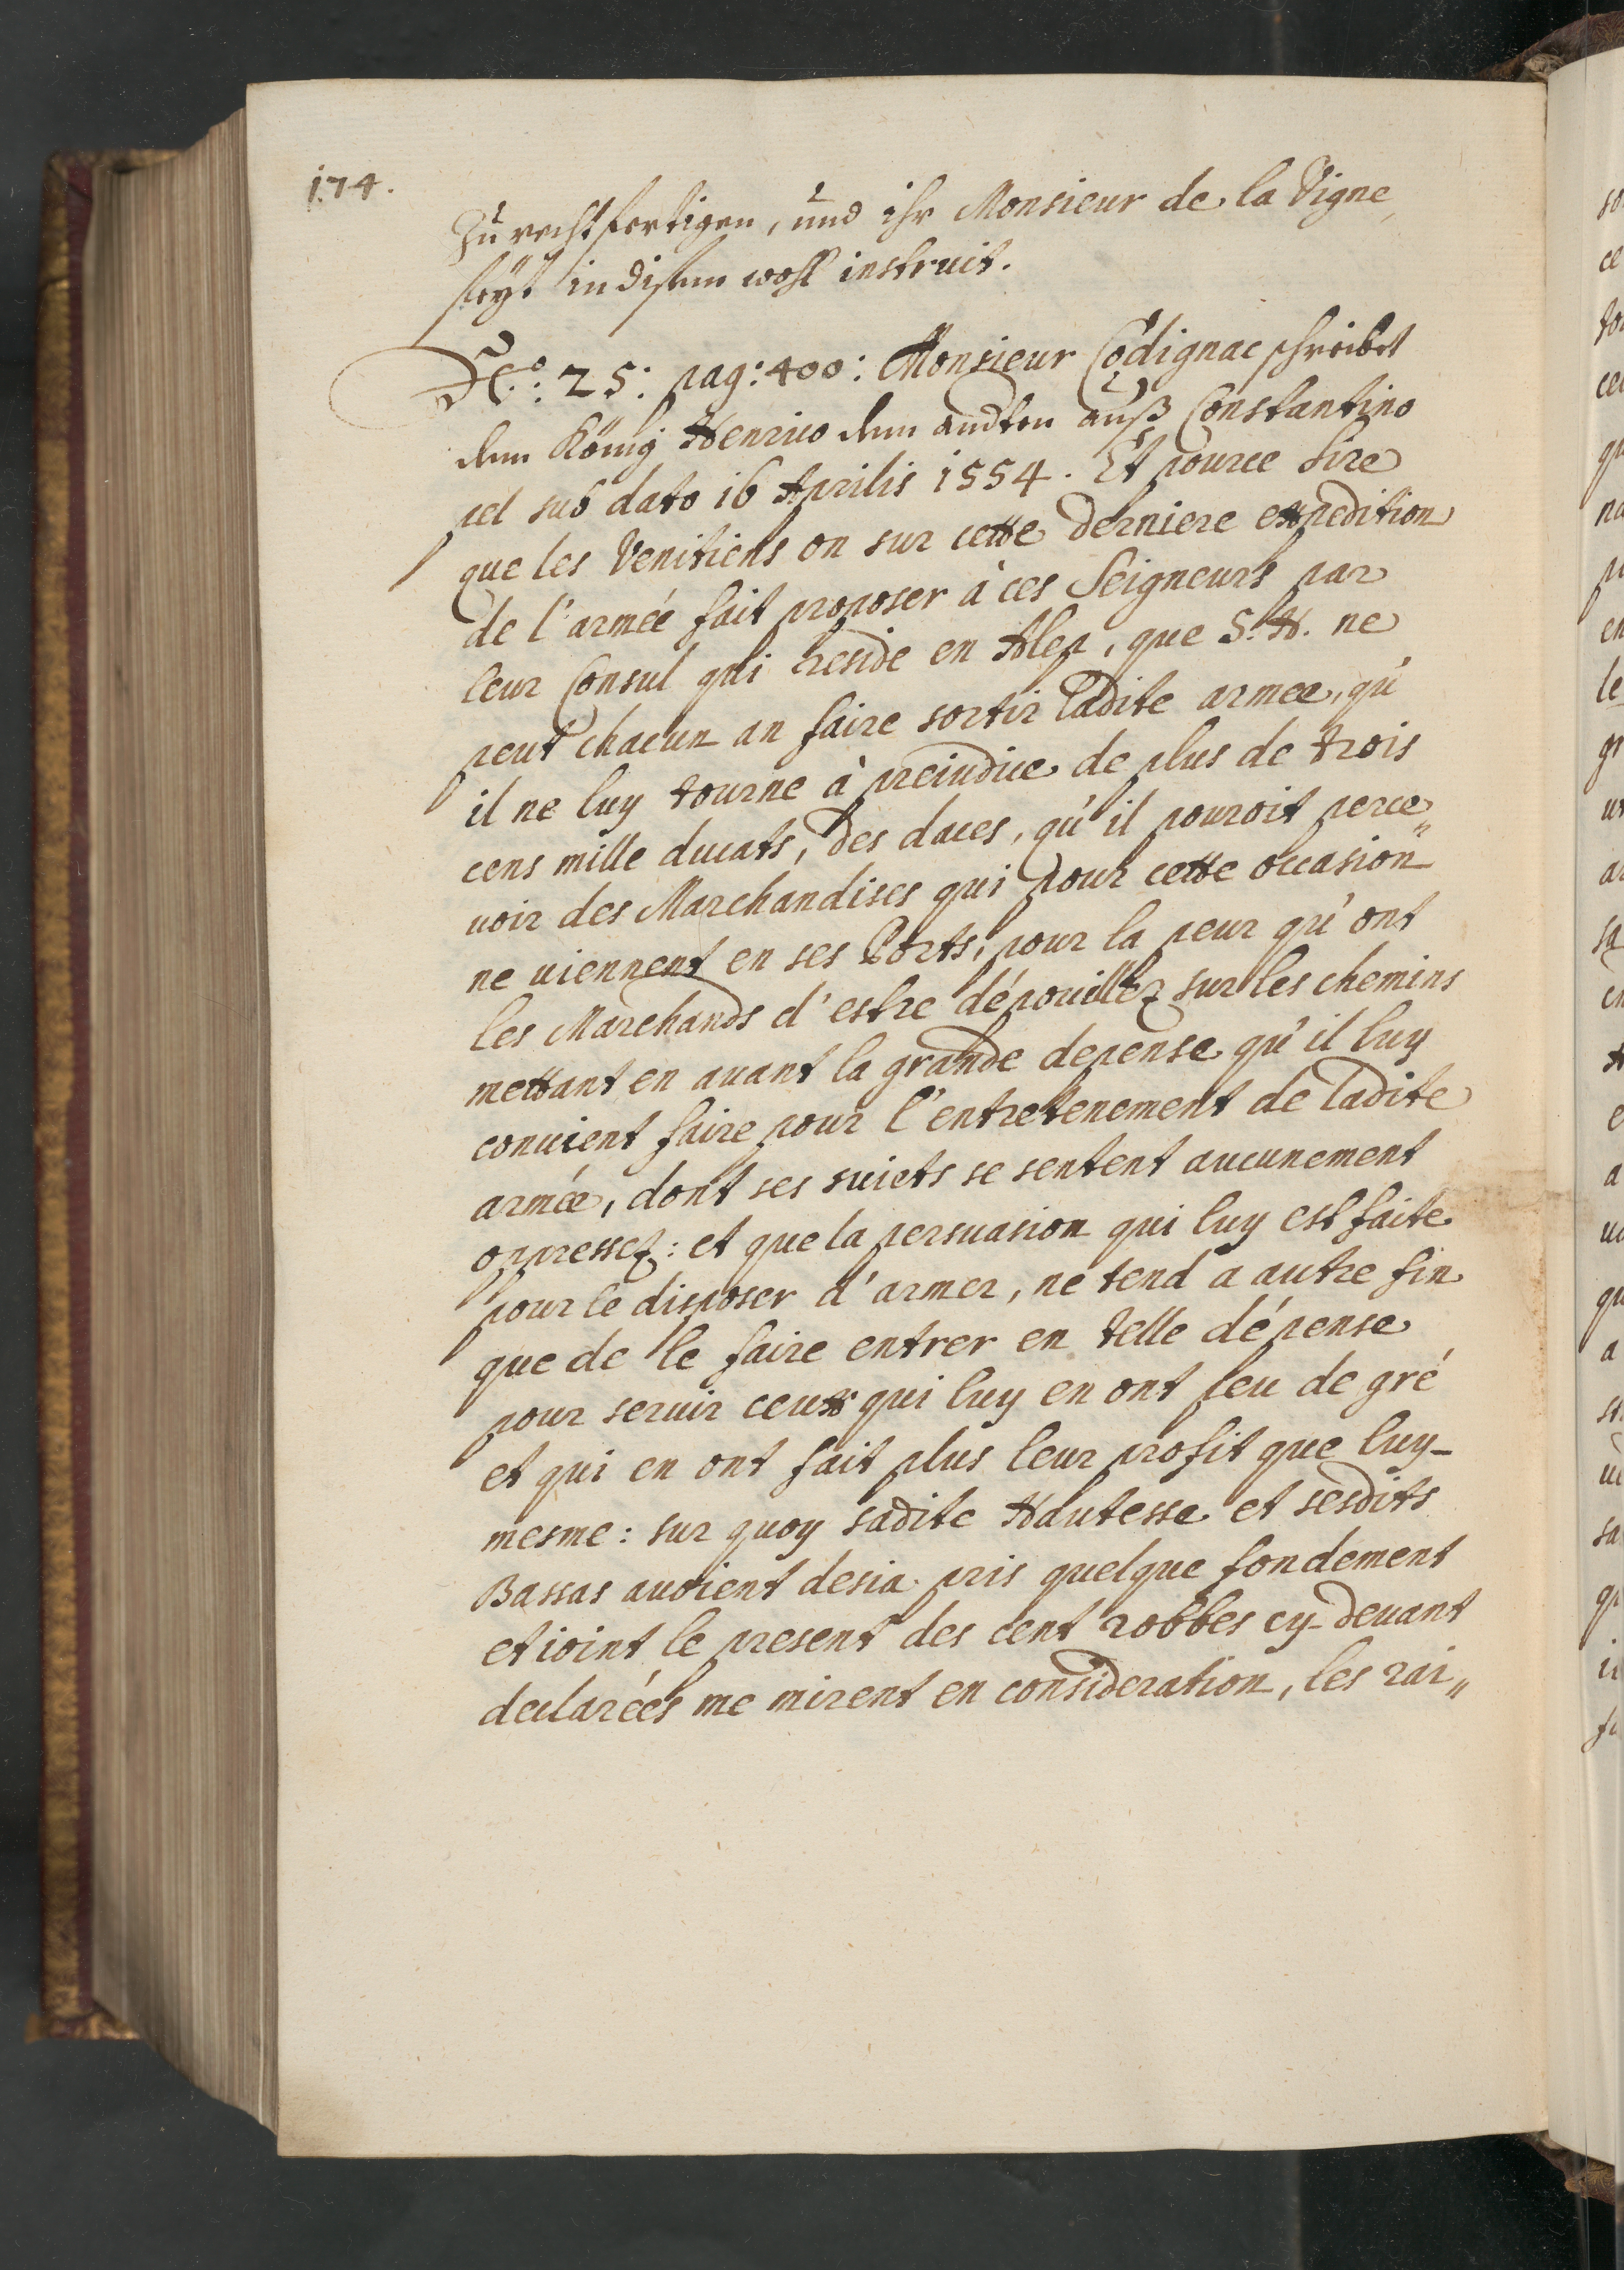 174.
zu rechtfertigen, und ihr Monsieur de la Vigne
seyt in disem wohl instruit.
No: 25: pag: 400: Monsieur Codignac schreibet
dem König Henrico dem andten auß Constantino
pel sub dato 16 Aprilis 1554. Et pource Sire
que les Venitiens on sur cette derniere expedition
de l'armée fait proposer à ces Seigneurs par
leur Consul qui reside en Alep, que S. H. ne
peut chacun an faire sortir ladite armee, qu'
il ne luy tourne à preiudice de plus de trois
cens mille ducats, des daces, qu'il pouroit perce„
uoir des Marchandises qui pour cette occasion
ne uiennent en ses Ports, pour la peur qu'ont
les Marchands d'estre dépouillez sur les chemins
mettant en auant la grande depense qu'il luy
conuient faire pour l'entretenement de ladite
armée, dont ses suiets se sentent aucunement
oppressez: et que la persuasion qui luy est faite
pour le disposer d'armer, ne tend a autre fin
que de le faire entrer en telle dépense
pour seruir ceux qui luy en ont peu de gré
et qui en ont fait plus leur profit que luy-
mesme: sur quoy sadite Hautesse et sesdits
Bassas auoient desia pris quelque fondement
et ioint le present des cent robbes cy-deuant
declarées me mirent en consideration, les rai„